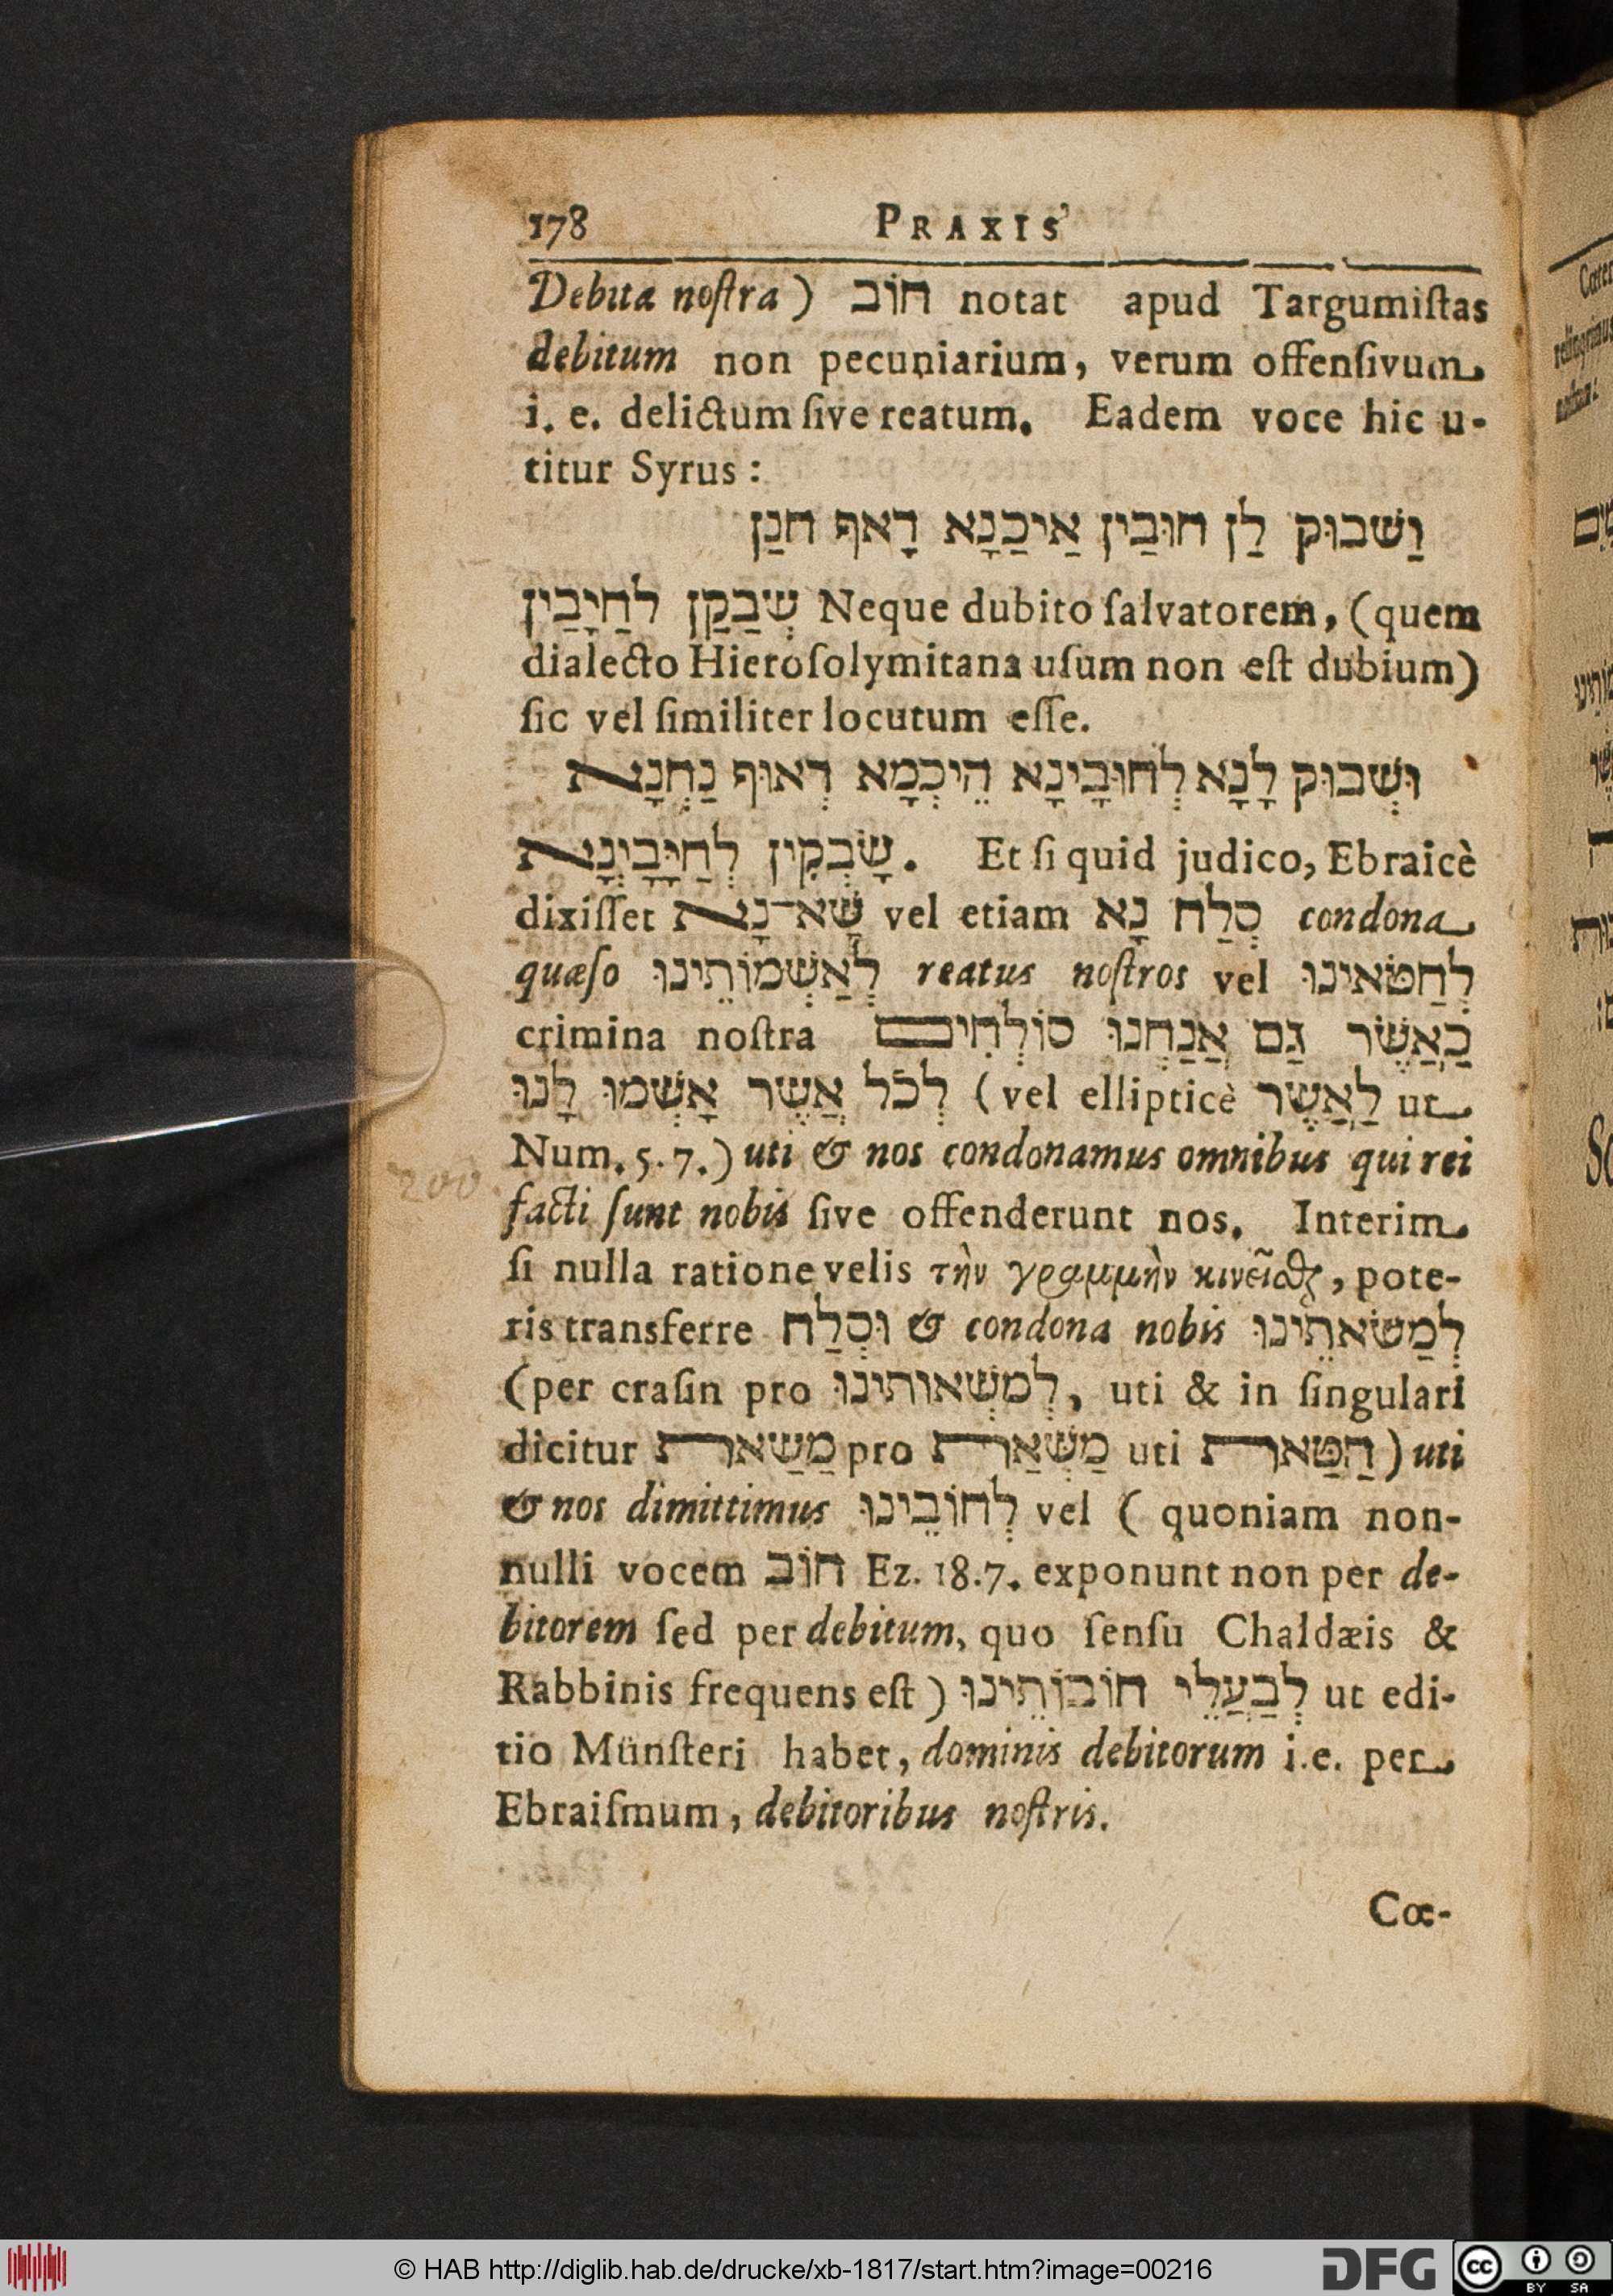 178 PRAXIS
Debita noſtra) חוֹב notat apud Targumiſtas
debitum non pecuniarium, verum offenſivum
i. e. delictum ſive reatum. Eadem voce hic u-
titur Syrus:
וַשׁבוּק לַן חוּבַין אַיכַּנָא דָאף חנַן
שְׁבַקַן לחַיָבַין Neque dubito ſalvatorem, (quem
dialecto Hieroſolymitana uſum non eſt dubium)
ſic vel ſimiliter locutum eſſe.
וּשְׁבוּק לָנָא לְחוּבָינָא הֵיכְמָא דְאוּף נַחְנָא
שָׁבְקִין לְחַיָּבָיְנָא. Et ſi quid judico, Ebraicè
dixiſſet שָׂא־נָא vel etiam סְלַח נָא condona
quæſo לְאַשְׁמוֹתֵינוּ reatus noſtros vel לְחַטֹּאינוּ
crimina noſtra כַּאֲשֶׁר גַם אֲנַחְנוּ סוֹלְחִים
לְכֹל אֲשֶׁר אָשְׁמוּ לָנוּ (vel ellipticè לַאֲשֶׁר ut
Num. 5. 7.) uti & nos condonamus omnibus qui rei
facti ſunt nobis ſive offenderunt nos. Interim
ſi nulla ratione velis τὴν γραμμὴν κινεῖσθαι, pote-
ris transferre וּסְלַח & condona nobis לְמַשֹּׁאתֵינוּ
(per craſin pro לְמשְׁאותינוּ, uti & in ſingulari
dicitur מַשַּׁאת pro מַשְׁאַת uti חַטַּאת) uti
& nos dimittimus לְחוֹבֵינוּ vel (quoniam non-
nulli vocem חוֹב Ez. 18. 7. exponunt non per de-
bitorem ſed per debitum, quo ſenſu Chaldæis &
Rabbinis frequens eſt) לְבַעֲלֵי חוֹבוֹתֵינוּ ut edi-
tio Münſteri habet, dominis debitorum i. e. per
Ebraiſmum, debitoribus noſtris.
Cœ-
200
© HAB http://diglib.hab.de/drucke/xb-1817/start.htm?image=00216
DFG
cc BY SA